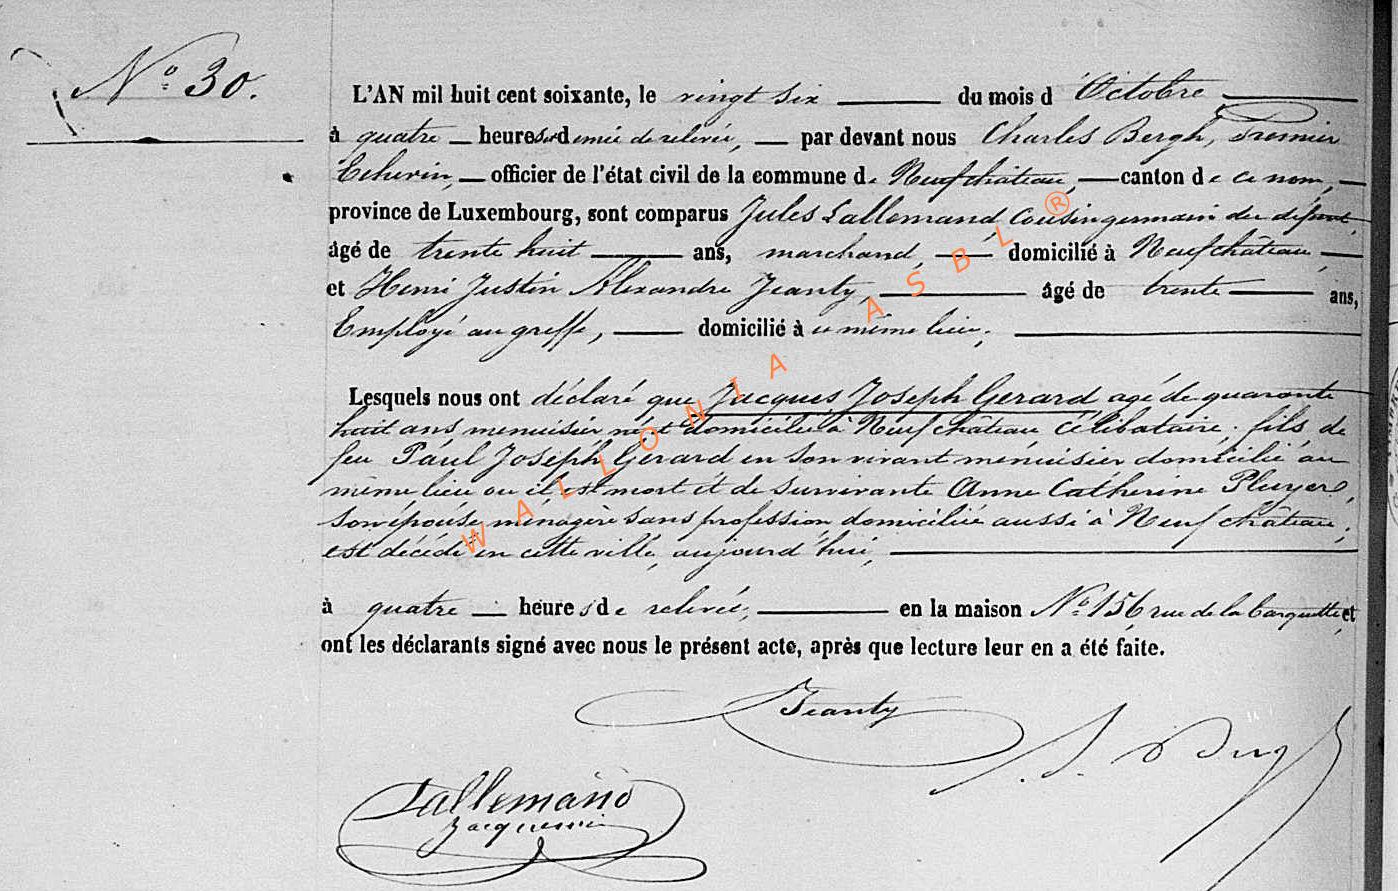 N° 30.
L'AN mil huit cent soixante, le vingt six du mois d'Octobre
à quatre heures et demie de relevée, par devant nous Charles Bergh, Premier
Echevin, officier de l'état civil de la commune de Neufchâteau, canton de ce nom,
province de Luxembourg, sont comparus Jules Lallemand, Cousin germain du défunt,
âgé de trente huit ans, marchand, domicilié à Neufchâteau,
et Henri Justin Alexandre Jeanty, âgé de trente ans,
Employé au greffe, domicilié à ce même lieu;
Lesquels nous ont déclaré que Jacques Joseph Gerard agé de quarante
huit ans menuisier né et domicilié à Neufchâteau célibataire, fils de
feu Paul Joseph Gerard en son vivant menuisier domicilié au
même lieu ou il est mort et de survivante Anne Catherine
son épouse ménagère sans profession, domiciliée aussi à Neufchâteau;
est décédé en cette ville, aujourd'hui,
à quatre heures de relevée, en la maison N° 156 rue de la et
ont les déclarants signé avec nous le présent acte, après que lecture leur en a été faite.
Jeanty
Lallemand
WALLONIA ASBL ®